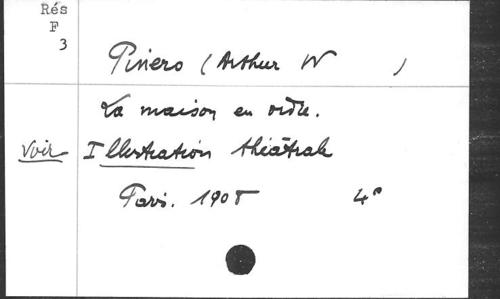 Rés
F
3
Pinero (Arthur W )
La maison en ordre.
Voir Illustration théâtrale
Paris. 1908 4°